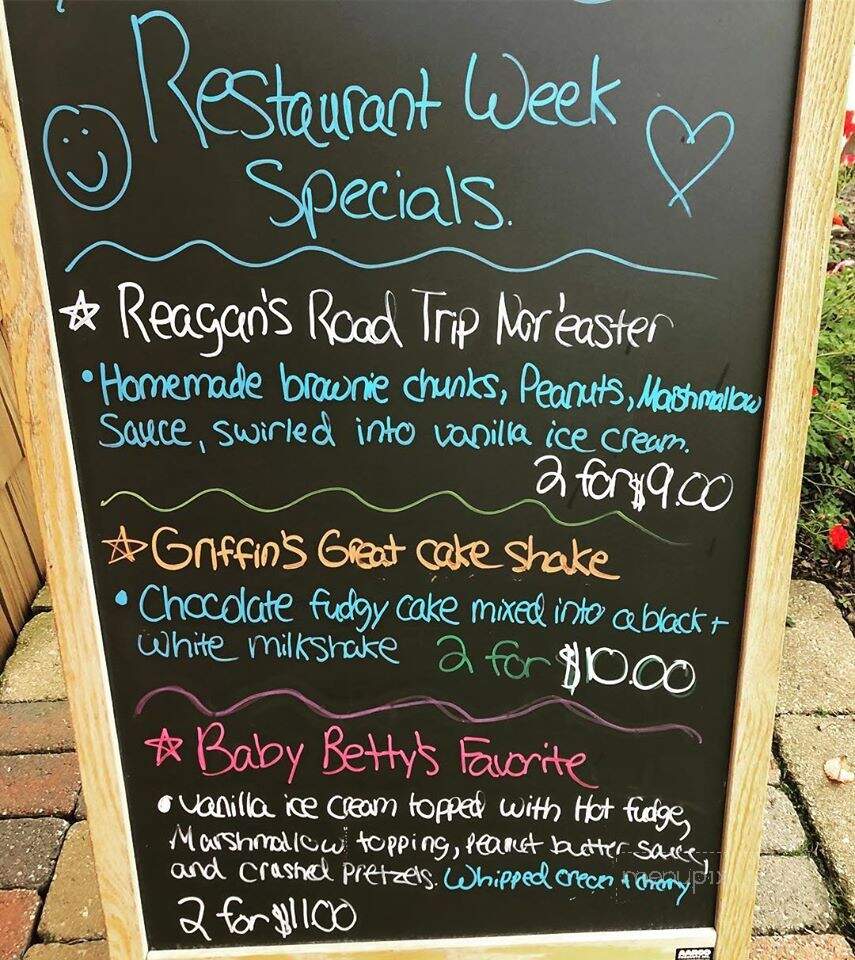 Restaurant Week
Specials.
Reagan's Road Trip Nor'easter
• Homemade brownie chunks, Peanuts, Marshmallow
Sauce, swirled into vanilla ice cream.
2 for $9.00
Griffin's Great cake shake
• Chocolate fudgy cake mixed into a black +
white milkshake 2 for $10.00
Baby Betty's Favorite
• Vanilla ice cream topped with Hot fudge,
Marshmallow topping, peanut butter sauce,
and crashed pretzels. Whipped cream + cherry
2 for $11.00